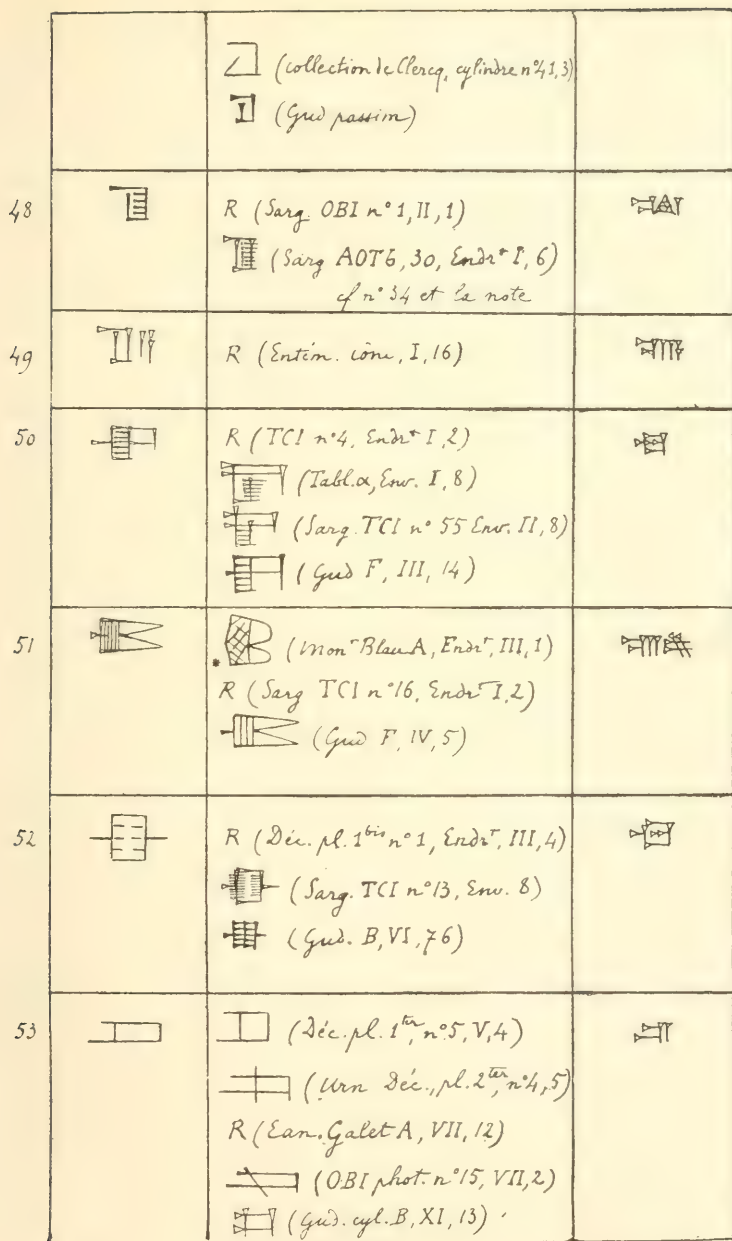 (collection de Clercq, cylindre n° 41, 3)
(Gud passim)
48 R (Sarg. OBI n° 1, II, 1)
(Sarg AOTb, 30, Endrt I, 6)
cf n° 34 et la note
49 R (Entém. cône, I, 16)
50 R (TCI n° 4, Endrt I, 2)
(Tabl. α, Env. I, 8)
(Sarg. TCI n° 55 Env. II, 8)
(Gud F, III, 14)
51 (mont Blau A, Endrt, III, 1)
R (Sarg TCI n° 16, Endrt I, 2)
(Gud F, IV, 5)
52 R (Déc. pl. 1bis n° 1, Endrt, III, 4)
(Sarg. TCI n° 13, Env. 8)
(Gud. B, VI, 76)
53 (Déc. pl. 1ter, n° 5, V, 4)
(Urn Déc., pl. 2ter, n° 4, 5)
R (Ean. Galet A, VII, 12)
(OBI phot. n° 15, VII, 2)
(Gud. cyl. B, XI, 13)